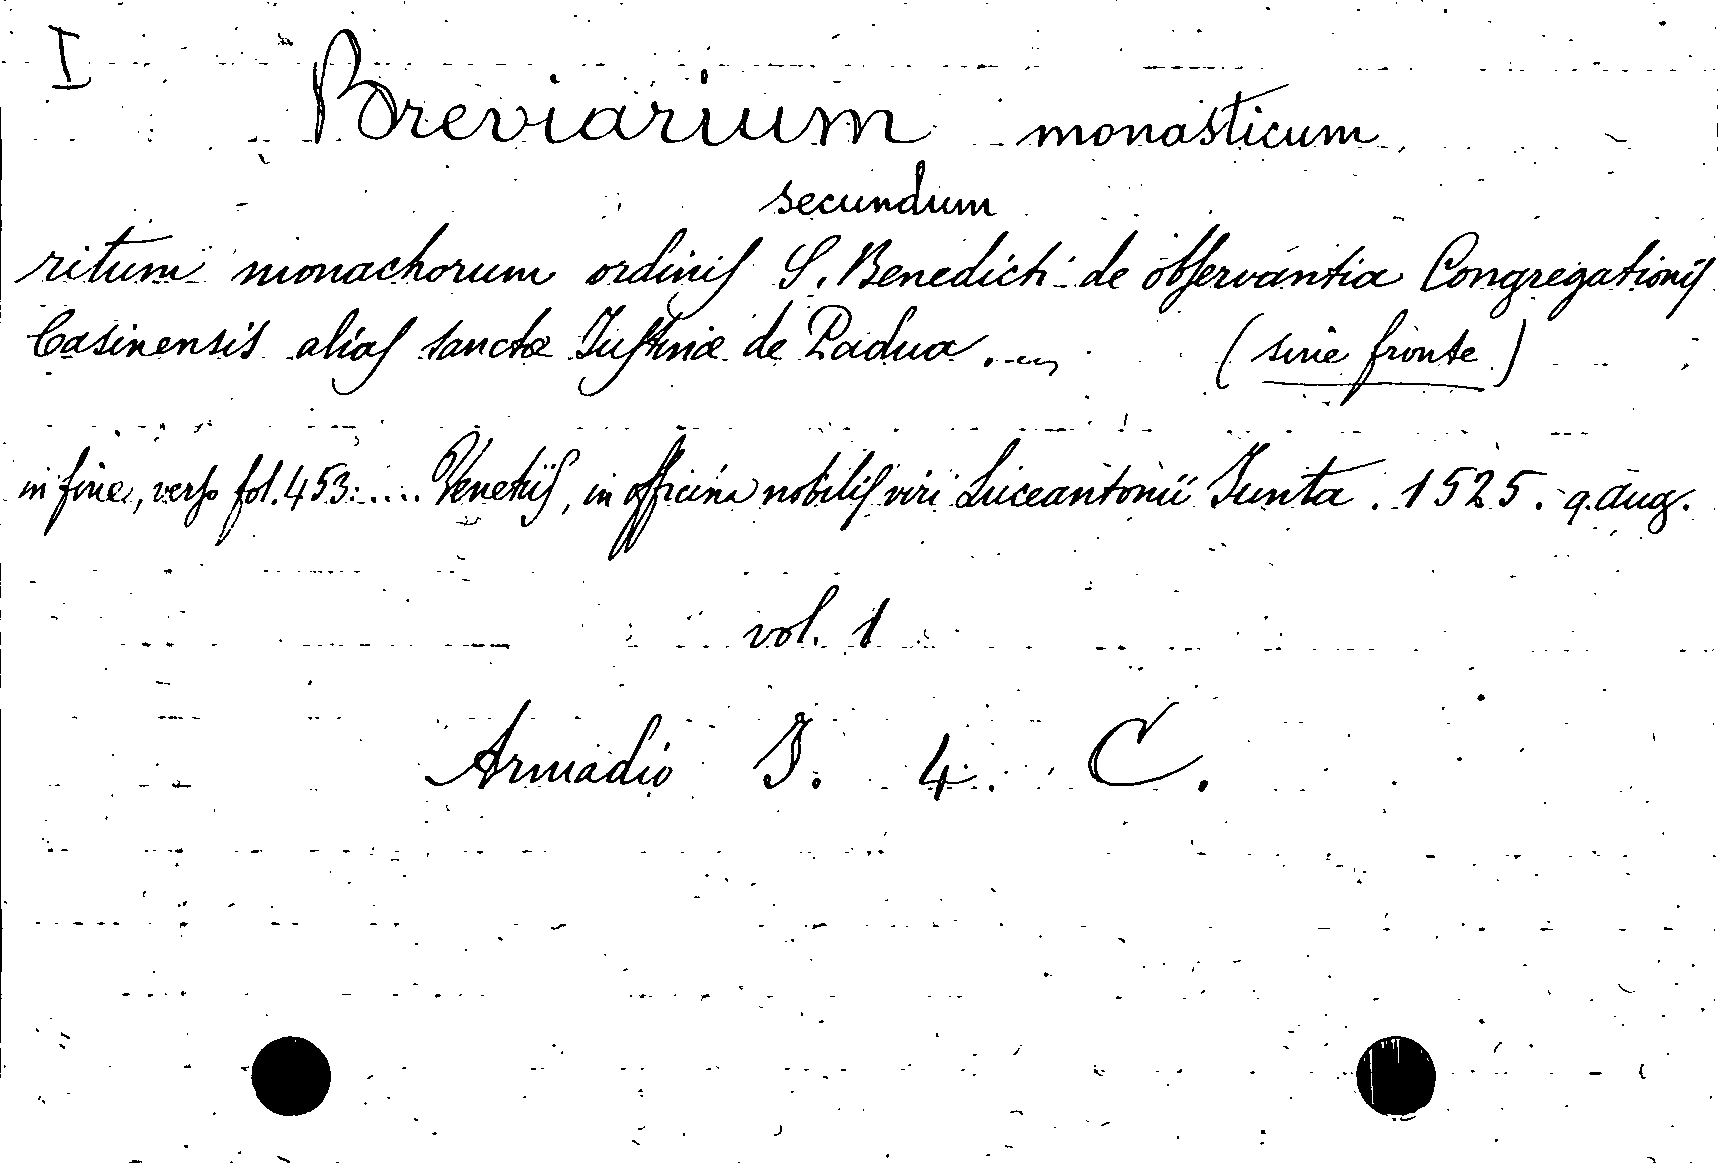 I
Breviarium monasticum
secundum
ritum monachorum ordinis S. Benedicti de observantia Congregationis
Casinensis alias sanctæ Justinæ de Padua .... (sine fronte)
in fine, verso fol. 453: .... Venetiis, in officina nobilis viri Luceantonii Junta. 1525. 9. aug.
vol. 1
Armadio I. 4. C.